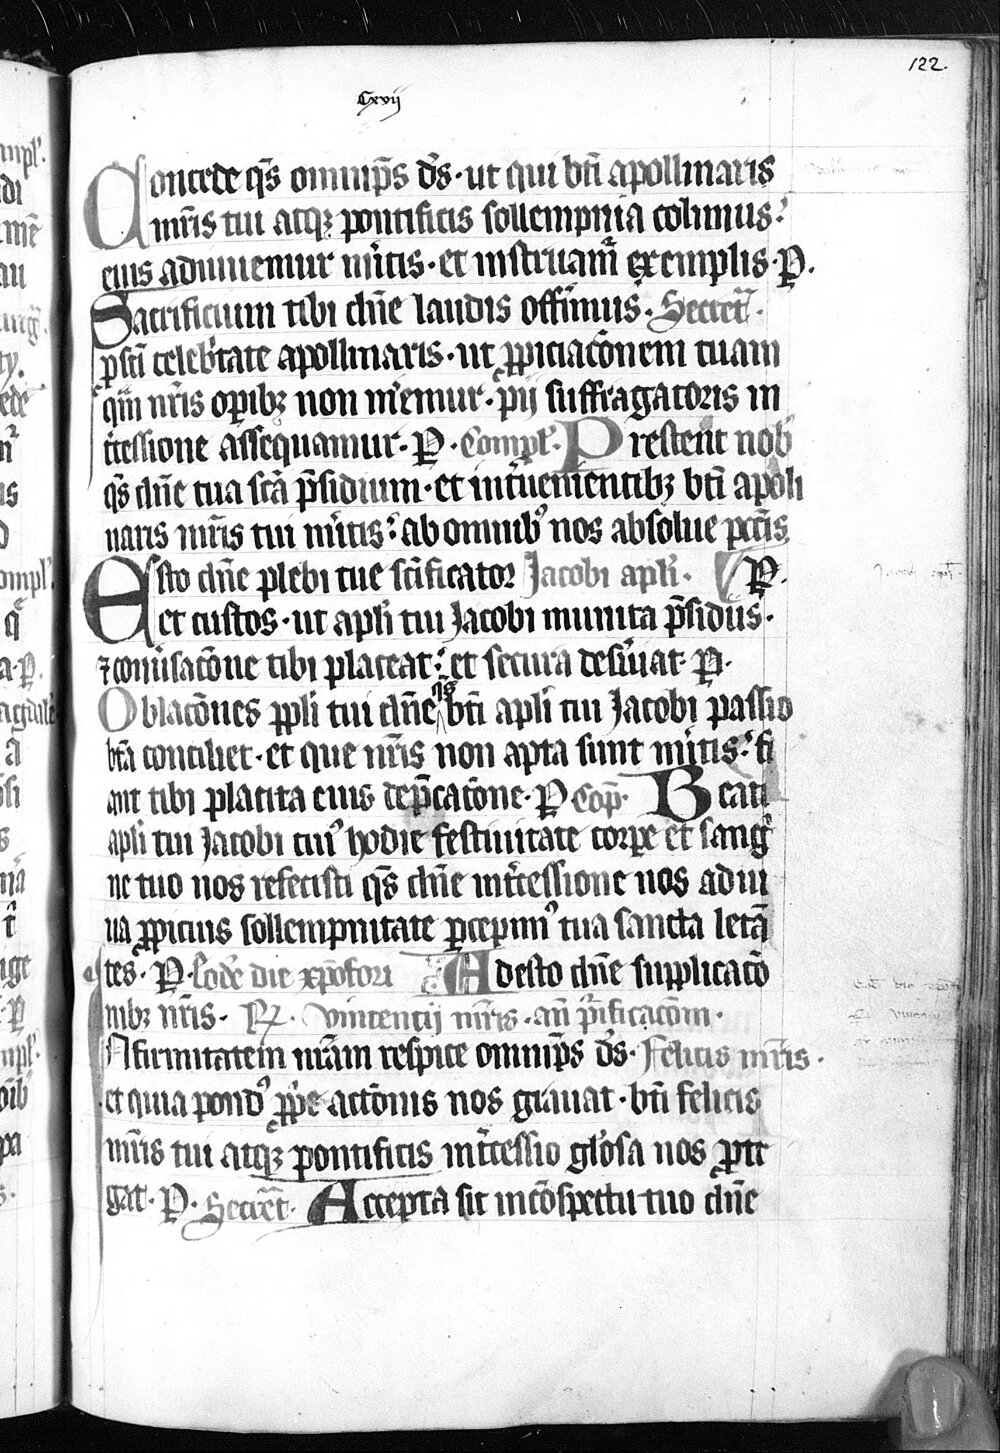 122.
Cxvij
Concede q̄s omnip̄s d̄s · ut qui bt̄i apollinaris
mr̄is tui atqꝫ pontificis sollempnia colimus:
eius adiuuemur mͥtis · et instruam̄ exemplis · P.
Sacrificium tibi dn̄e laudis offͥimus · Secret̄ ·
ꝓ sc̄i celebͥtate apollinaris · ut ꝓpiciac̄onem tuam
qm̄ nr̄is opibꝫ non mͥemur · pij suffragatoris in
tͥcessione assequamur · P · Compl̄ · Prestent nob̄
q̄s dn̄e tua sc̄a p̄sidium · et intͥuenientibꝫ bt̄i apoli
naris mr̄is tui mͥtis: ab omnibꝰ nos absolue pcc̄is
Esto dn̄e plebi tue sc̄ificator Jacobi apl̄i · P.
et custos · ut apl̄i tui Jacobi munita p̄sidiis ·
⁊ conūsac̄one tibi placeat: et secura desūiat · P ·
Oblac̄ones ppl̄i tui dn̄e q̄s bt̄i apl̄i tui Jacobi passio
bt̄a conciliet · et que nr̄is non apta sunt mͥtis: fi
ant tibi placita eius dep̄cac̄one · P Cop̄ · Beati
apl̄i tui Jacobi cuiꝰ hodie festiuitate corpe et sang
ne tuo nos refecisti q̄s dn̄e intͥcessione nos adiu
ua ꝓpicius sollempnitate ꝑcepimꝰ tua sancta letā
tes · P · Eode die xp̄ofori Adesto dn̄e supplicac̄o
nibꝫ nr̄is · Rx · Vincentij mr̄is · an̄ p̄ificac̄om ·
Infirmitatem nr̄am respice omnip̄s d̄s · Felicis mr̄is ·
et quia pondꝰ ꝓpe actōnis nos grauat · bt̄i felicis
mr̄is tui atqꝫ pontificis intͥcessio glōsa nos ꝓte
gat · P · Secret̄ · Accepta sit in cōspectu tuo dn̄e